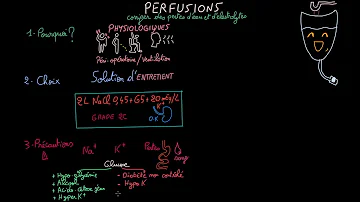 PERFUSIONS
compenser des pertes d'eau et d'électrolytes
1- Pourquoi?
PHYSIOLOGIQUES
Péri-opératoire / Ventilation
2- Choix
Solution d'ENTRETIEN
2L NaCl 0,45 + G5 + 20 mEq/L
K+
GRADE 2C
OK
3- Précautions
Na+
K+
Pertes
sang
Glucose
+ Hypoglycémie
+ Alcool
+ Acido-cétose
+ Hyper K+
- Diabète non contrôlé
- Hypo K